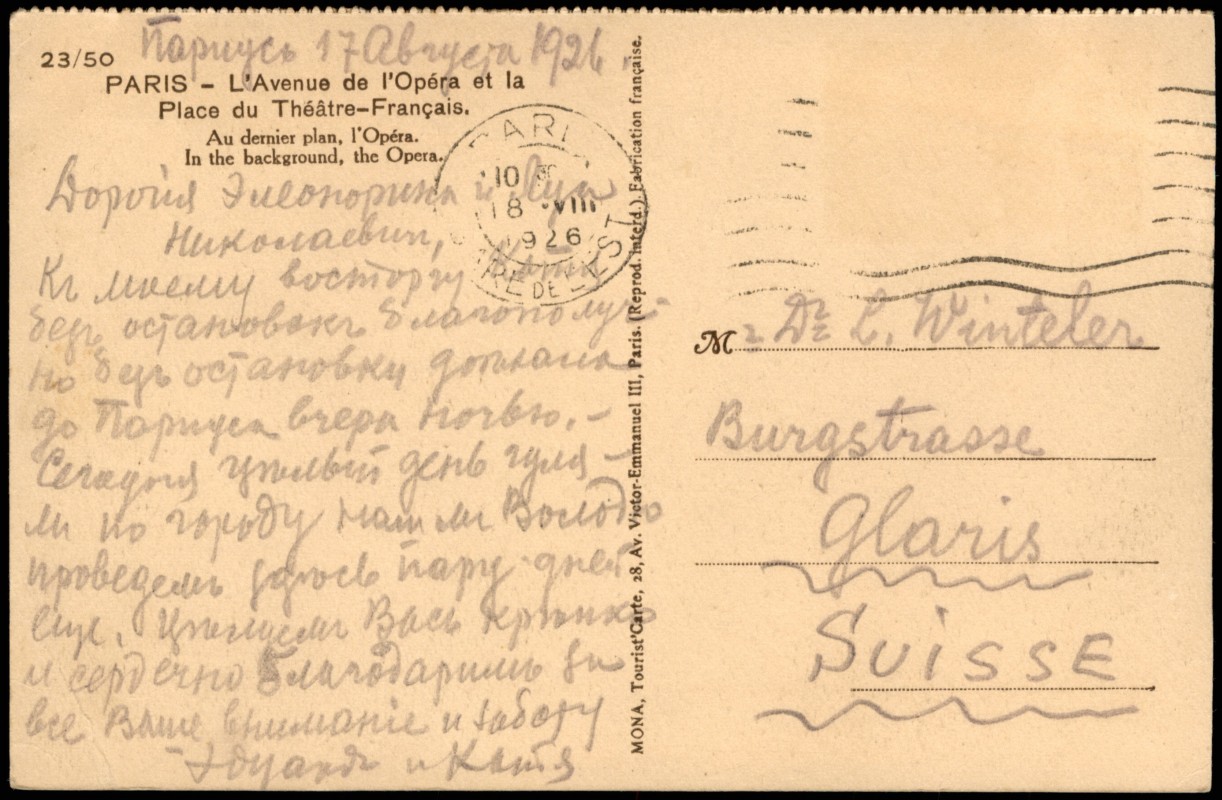 Парижъ 17 Августа 1926.
23/50
PARIS – L'Avenue de l'Opéra et la
Place du Théâtre-Français.
Au dernier plan, l'Opéra.
In the background, the Opera.
PARIS
10
18 VIII
1926
GARE DE L'EST
Дорогія Элеонорина и
Николаевич,
Къ моему восторгу Катя
безъ остановокъ благополуч
но безъ остановки доѣхала
до Парижа вчера ночью. –
Сегодня цѣлый день гуля –
ли по городу нашли Володю
проведемъ здѣсь пару дней
еще. Цѣлуемъ Васъ крѣпко
и сердечно благодаримъ за
все Ваше вниманіе и заботу
Эдуардъ и Катя
MONA, Tourist'Carte, 28, Av. Victor-Emmanuel III, Paris. (Reprod. interd.) Fabrication française.
M Dr L. Winteler
Burgstrasse
Glaris
SUISSE